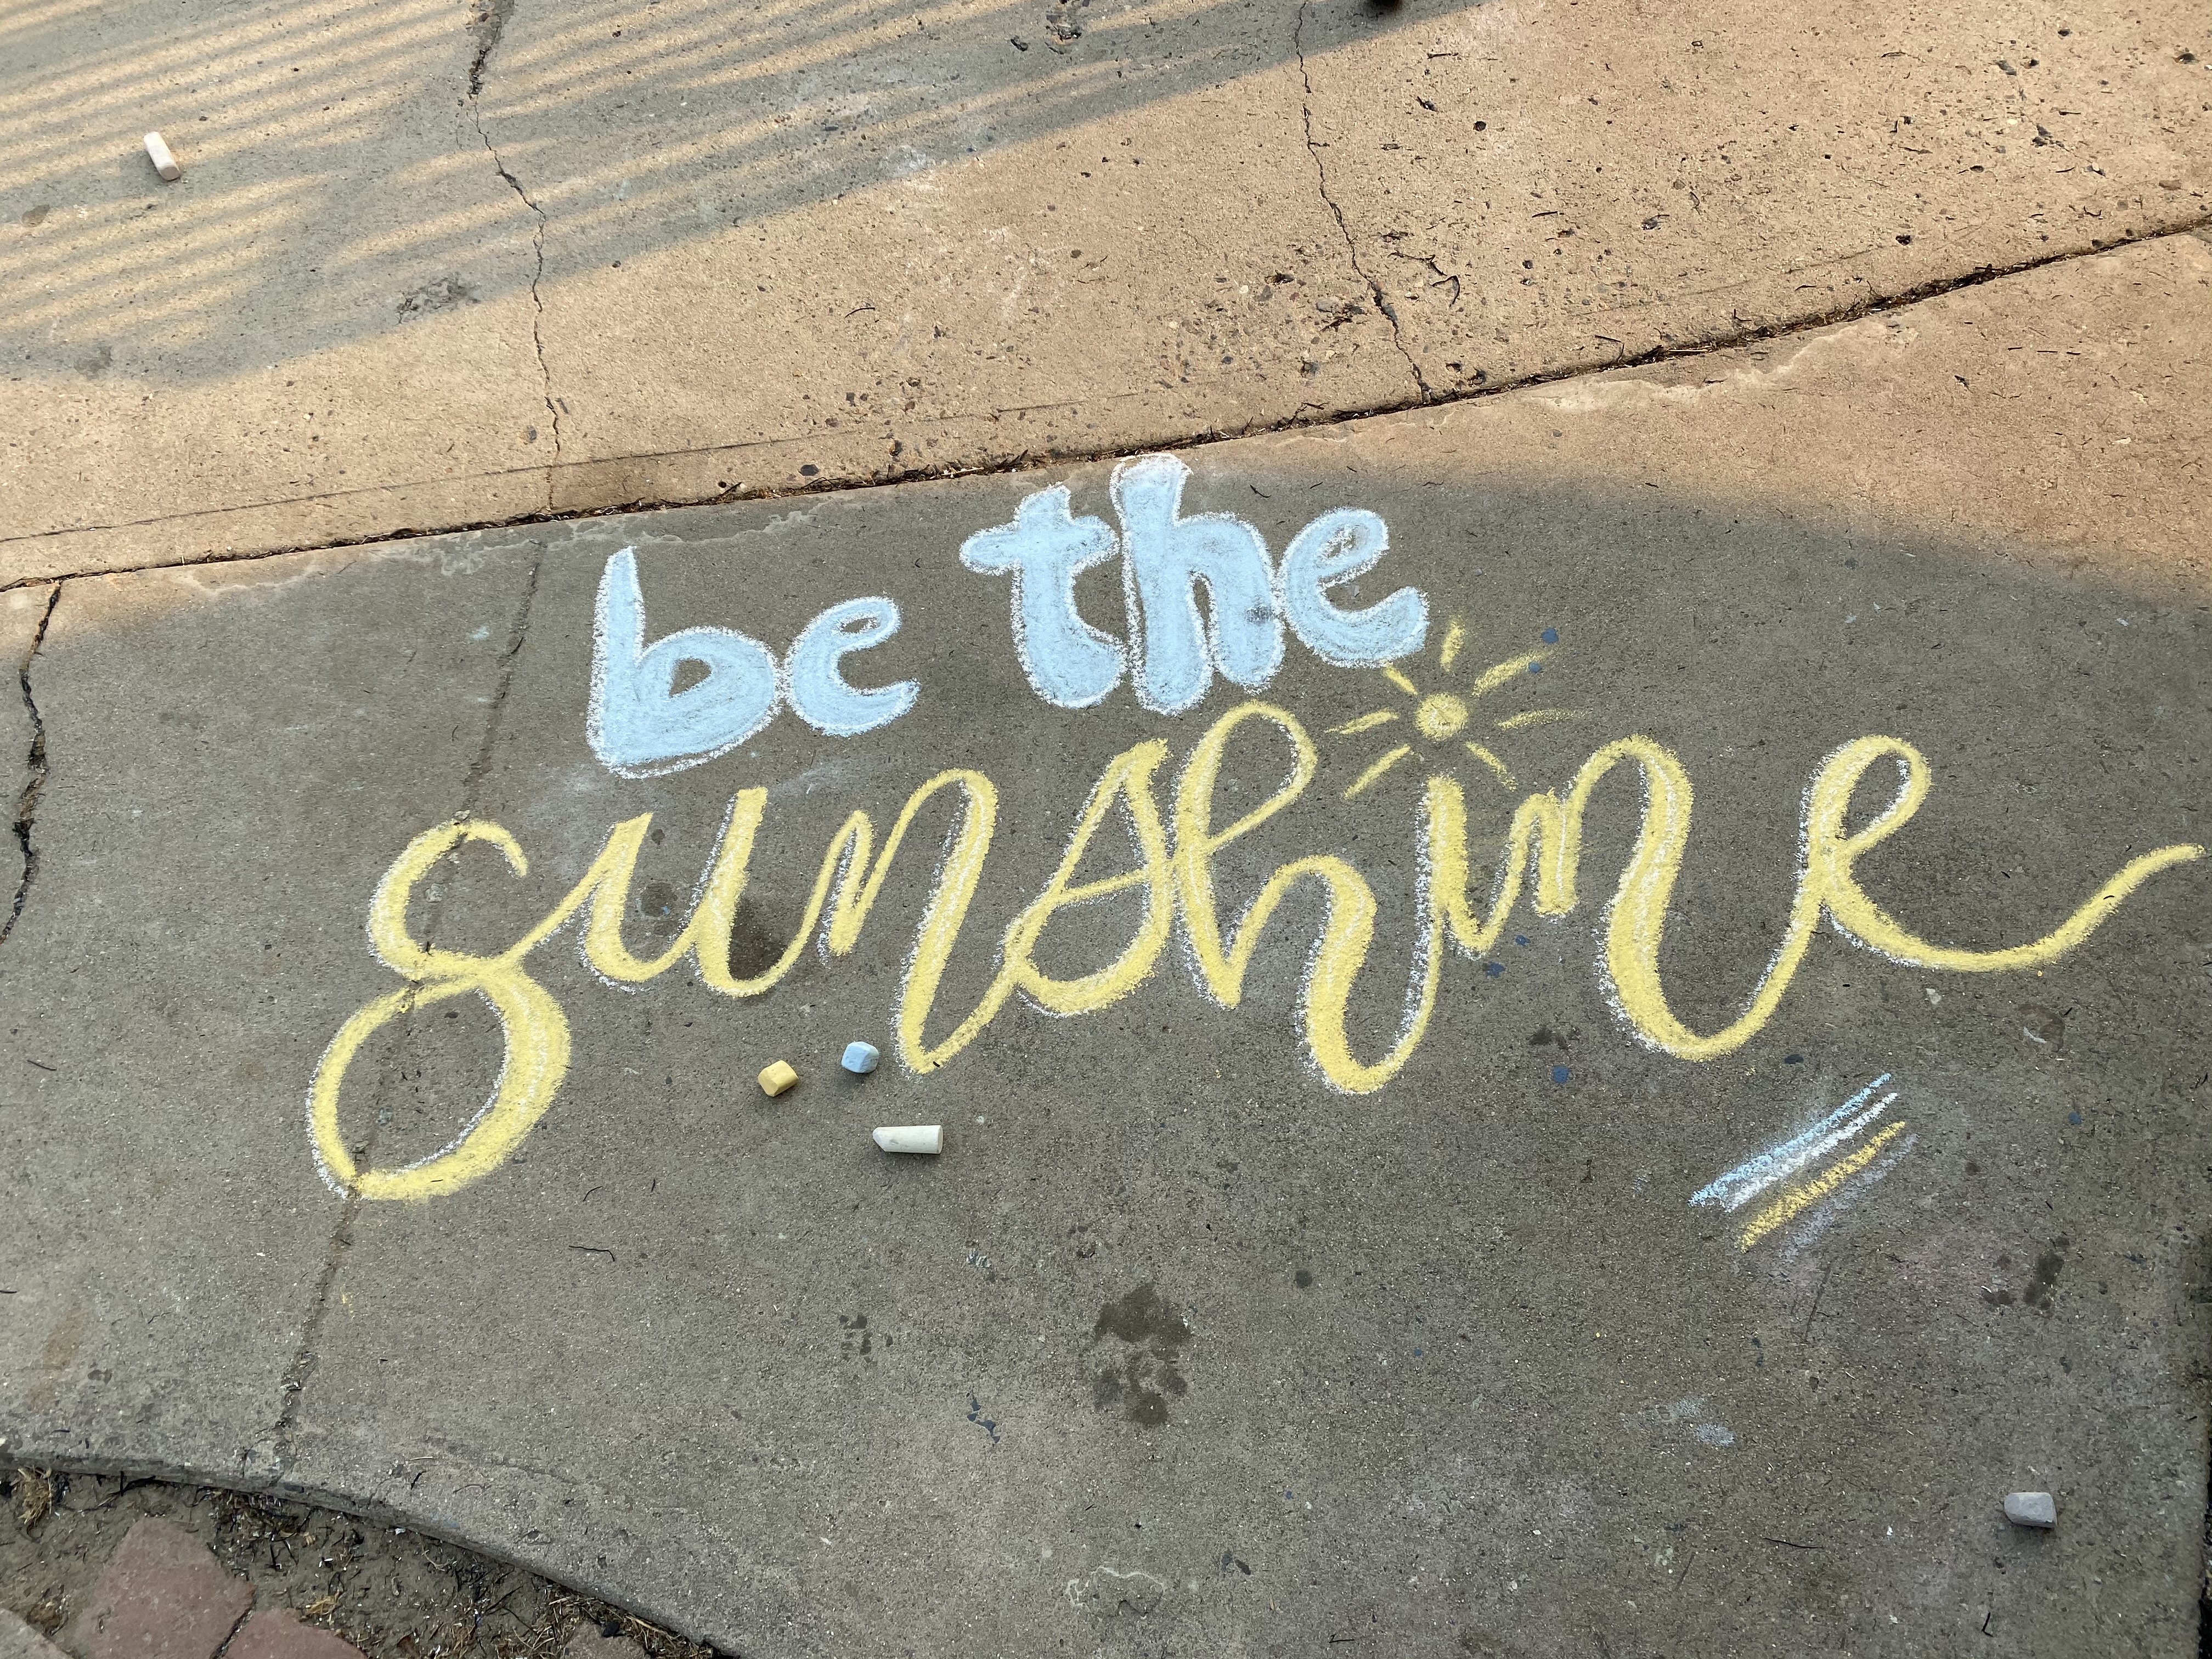 be the
sunshine